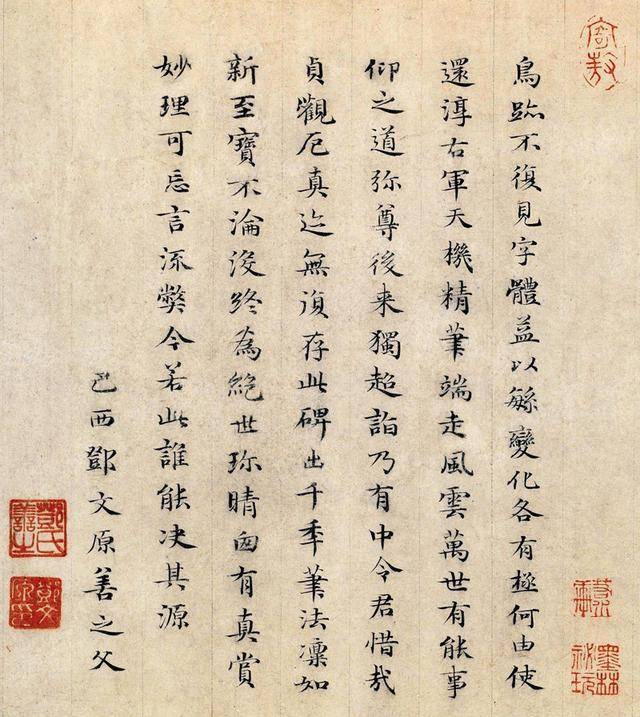 鳥跡不復見字體益以緐變化各有極何由使
還淳右軍天機精筆端走風雲萬世有能事
仰之道弥尊後来獨超詣乃有中令君惜哉
貞觀后真迹無復存此碑出千季筆法凛如
新至寶不淪没終為絕世珎晴囱有真賞
妙理可忘言流弊今若此誰能决其源
己酉鄧文原善之父
墨林
祕玩